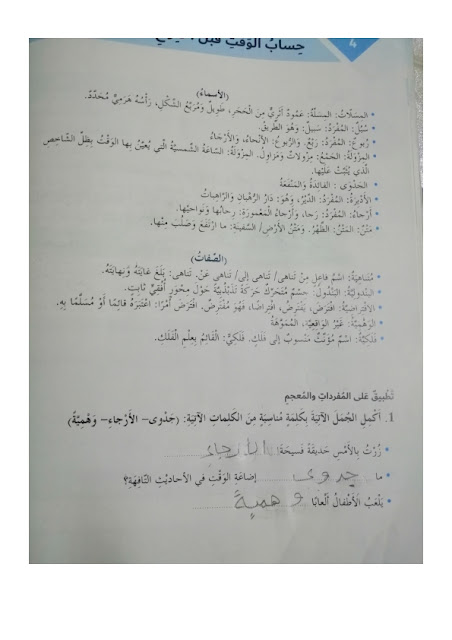 حِسابُ الوَقْتِ قَبْلَ
4
(الأسماءُ)
• المِسَلّاتُ: المِسَلَّةُ: عَمُودٌ أَثَرِيٌّ مِنَ الحَجَرِ، طَويلٌ وَمُرَبَّعُ الشَّكْلِ، رَأْسُهُ هَرَمِيٌّ مُحَدَّدٌ.
• سُبُل: المُفْرَدُ: سَبيلٌ: وَهُوَ الطَّريقُ.
• رُبوعٌ: المُفْرَدُ: رَبْعٌ، وَالرُّبوعُ: الأَنْحاءُ، وَالأَرْجاءُ
• المِزْوَلَةُ: الجَمْعُ: مِزْولاتٌ وَمَزاوِلُ. المِزْوَلَةُ: السّاعَةُ الشَّمْسِيَّةُ الَّتي يُعَيَّنُ بِها الوَقْتُ بِظِلِّ الشّاخِصِ
الَّذي يُثَبَّتُ عَلَيْها.
• الجَدْوَى : الفائِدَةُ وَالمَنْفَعَةُ
• الأَدْيِرَةُ: المُفْرَدُ: الدَّيْرُ، وَهُوَ: دَارُ الرُّهْبانِ وَالرّاهِباتُ
• أَرْجاءُ: المُفْرَدُ: رَجا، وَأَرْجاءُ المَعْمورَةِ: رِحابُها وَنَواحيها.
• مَتْنُ: المَتْنُ: الظَّهْرُ. وَمَتْنُ الأَرْضِ/ السَّفينَةِ: ما ارْتَفَعَ وَصَلُبَ مِنْها.
(الصِّفاتُ)
• مُتَناهِيَةٌ: اسْمُ فاعِلٍ مِنْ تَناهى/ تَناهى إِلى/ تَناهى عَنْ. تَناهى: بَلَغَ غايَتَهُ وَنِهايَتَهُ.
• البَنْدولِيَّةُ: البَنْدُولُ: جِسْمٌ مُتَحَرِّكٌ حَرَكَةً تَذَبْذُبِيَّةً حَوْلَ مِحْوَرٍ أُفُقِيٍّ ثابِتٍ.
• الافْتِراضِيَّةُ: افْتَرَضَ، يَفْتَرِضُ، افْتِراضًا، فَهُوَ مُفْتَرِضٌ. افْتَرَضَ أَمْرًا: اعْتَبَرَهُ قائِمًا أَوْ مُسَلَّمًا بِهِ.
• الوَهْمِيَّةُ: غَيْرُ الوَاقِعِيَّةِ، المُمَوَّهَةُ
• فَلَكِيَّةٌ: اسْمٌ مُؤَنَّثٌ مَنْسوبٌ إِلى فَلَكٍ. فَلَكِيٌّ: القائِمُ بِعِلْمِ الفَلَكِ.
تَطْبيقٌ عَلى المُفْرَداتِ والمُعجَمِ
1. أُكْمِلُ الجُمَلَ الآتِيَةَ بِكَلِمَةٍ مُناسِبَةٍ مِنَ الكَلِماتِ الآتِيَةِ: (جَدْوى– الأَرْجاءِ– وَهْمِيَّةً)
• زُرْتُ بِالأَمْسِ حَديقَةً فَسيحَةَ الأرجاءِ
• ما جدوى إِضاعَةِ الوَقْتِ في الأَحاديثِ التّافِهَةِ؟
• يَلْعَبُ الأَطْفالُ أَلْعابًا وهميةً